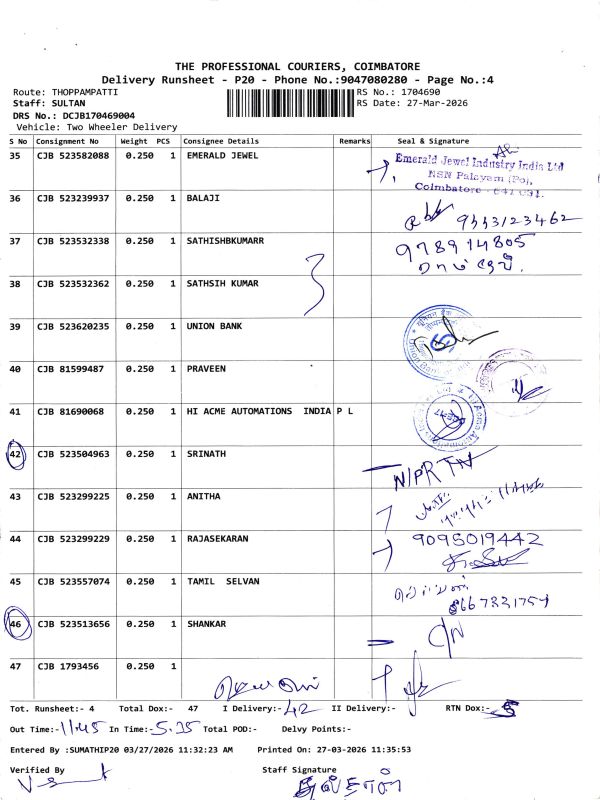 THE PROFESSIONAL COURIERS, COIMBATORE
Delivery Runsheet - P20 - Phone No.:9047080280 - Page No.:4
Route: THOPPAMPATTI RS No.: 1704690
Staff: SULTAN RS Date: 27-Mar-2026
DRS No.: DCJB170469004
Vehicle: Two Wheeler Delivery
S No Consignment No Weight PCS Consignee Details Remarks Seal & Signature
35 CJB 523582088 0.250 1 EMERALD JEWEL
Emerald Jewel Industry India Ltd
NSN Palayam (Po),
Coimbatore - 641 031.
36 CJB 523239937 0.250 1 BALAJI
37 CJB 523532338 0.250 1 SATHISHBKUMARR 978914805
38 CJB 523532362 0.250 1 SATHSIH KUMAR
39 CJB 523620235 0.250 1 UNION BANK
40 CJB 81599487 0.250 1 PRAVEEN
41 CJB 81690068 0.250 1 HI ACME AUTOMATIONS INDIA P L
42 CJB 523504963 0.250 1 SRINATH N/PRTN
43 CJB 523299225 0.250 1 ANITHA
44 CJB 523299229 0.250 1 RAJASEKARAN 9095019442
45 CJB 523557074 0.250 1 TAMIL SELVAN
46 CJB 523513656 0.250 1 SHANKAR
47 CJB 1793456 0.250 1
Tot. Runsheet:- 4 Total Dox:- 47 I Delivery:- 42 II Delivery:- RTN Dox:- 5
Out Time:- 11.45 In Time:- 5.35 Total POD:- Delvy Points:-
Entered By :SUMATHIP20 03/27/2026 11:32:23 AM Printed On: 27-03-2026 11:35:53
Verified By Staff Signature